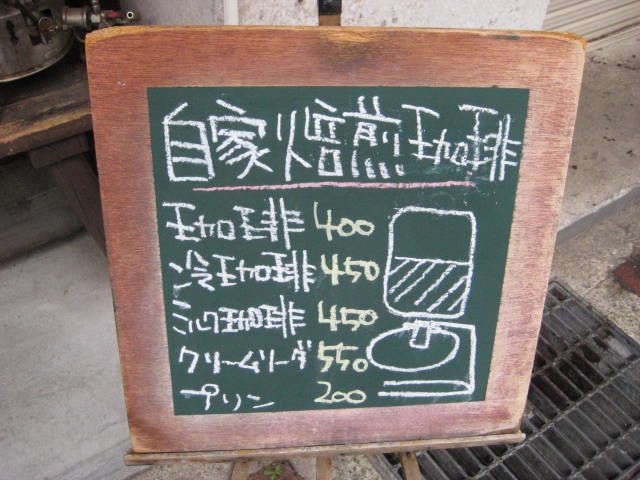 自家焙煎珈琲
珈琲 400
冷珈琲 450
ミルク珈琲 450
クリームソーダ 550
プリン 200